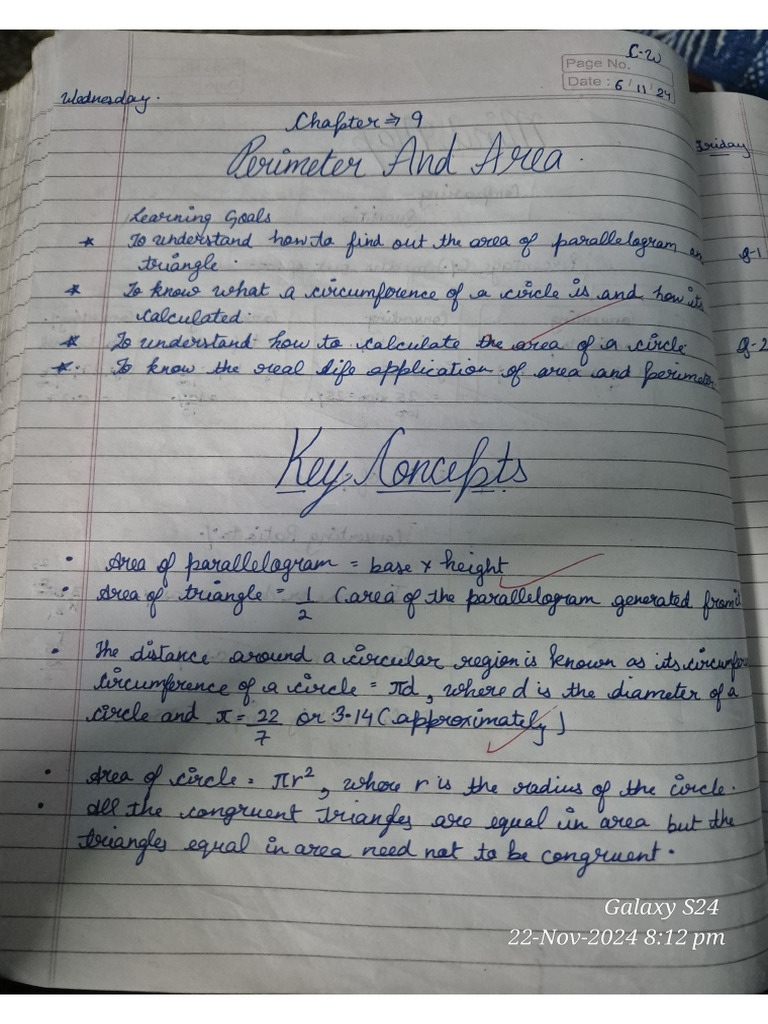 C-W
Page No.
Date : 6/11/24
Wednesday.
Chapter ⇒ 9
Perimeter And Area.
Friday
Learning Goals
* To understand how to find out the area of parallelogram an
triangle.
Q-1
* To know what a circumference of a circle is and how its
calculated.
* To understand how to calculate the area of a circle
Q-2
* To know the real life application of area and perimeter
Key Concepts
• Area of parallelogram = base × height
• Area of triangle = 1/2 (area of the parallelogram generated from i
• The distance around a circular region is known as its circumfere
circumference of a circle = πd, where d is the diameter of a
circle and π = 22/7 or 3.14 (approximately)
• Area of circle = πr², where r is the radius of the circle.
• All the congruent triangles are equal in area but the
triangles equal in area need not to be congruent.
Galaxy S24
22-Nov-2024 8:12 pm